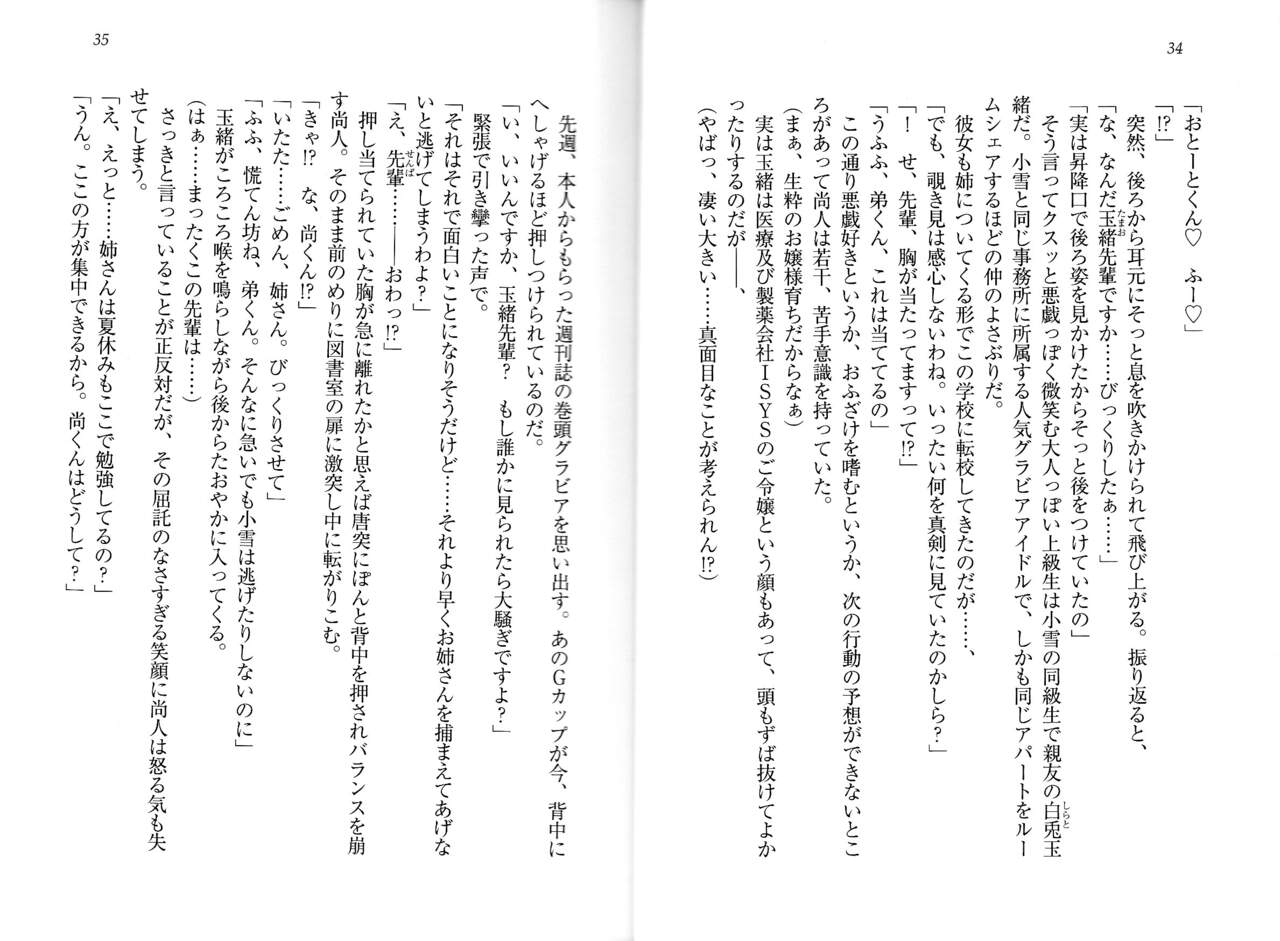 34
「おとーとくん♡　ふー♡」
「!?」
　突然、後ろから耳元にそっと息を吹きかけられて飛び上がる。振り返ると、
「な、なんだ玉緒先輩ですか……びっくりしたぁ……」
たまお
「実は昇降口で後ろ姿を見かけたからそっと後をつけていたの」
　そう言ってクスッと悪戯っぽく微笑む大人っぽい上級生は小雪の同級生で親友の白兎玉
しらと
緒だ。小雪と同じ事務所に所属する人気グラビアアイドルで、しかも同じアパートをルー
ムシェアするほどの仲のよさぶりだ。
　彼女も姉についてくる形でこの学校に転校してきたのだが……、
「でも、覗き見は感心しないわね。いったい何を真剣に見ていたのかしら？」
「！　せ、先輩、胸が当たってますって!?」
「うふふ、弟くん、これは当ててるの」
　この通り悪戯好きというか、おふざけを嗜むというか、次の行動の予想ができないとこ
ろがあって尚人は若干、苦手意識を持っていた。
（まぁ、生粋のお嬢様育ちだからなぁ）
　実は玉緒は医療及び製薬会社ＩＳＹＳのご令嬢という顔もあって、頭もずば抜けてよか
ったりするのだが――、
（やばっ、凄い大きい……真面目なことが考えられん!?）
35
　先週、本人からもらった週刊誌の巻頭グラビアを思い出す。あのＧカップが今、背中に
へしゃげるほど押しつけられているのだ。
「い、いいんですか、玉緒先輩？　もし誰かに見られたら大騒ぎですよ？」
　緊張で引き攣った声で。
「それはそれで面白いことになりそうだけど……それより早くお姉さんを捕まえてあげな
いと逃げてしまうわよ？」
「え、先輩………――おわっ!?」
せんぱ
　押し当てられていた胸が急に離れたかと思えば唐突にぽんと背中を押されバランスを崩
す尚人。そのまま前のめりに図書室の扉に激突し中に転がりこむ。
「きゃ!?　な、尚くん!?」
「いたた……ごめん、姉さん。びっくりさせて」
「ふふ、慌てん坊ね、弟くん。そんなに急いでも小雪は逃げたりしないのに」
　玉緒がころころ喉を鳴らしながら後からたおやかに入ってくる。
（はぁ……まったくこの先輩は……）
　さっきと言っていることが正反対だが、その屈託のなさすぎる笑顔に尚人は怒る気も失
せてしまう。
「え、えっと……姉さんは夏休みもここで勉強してるの？」
「うん。ここの方が集中できるから。尚くんはどうして？」